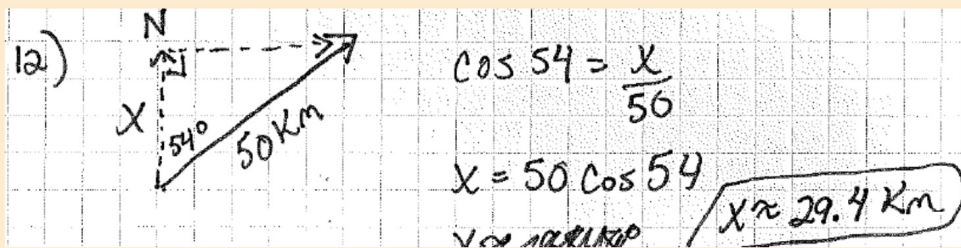 12)
N
X
54°
50 Km
cos 54 = X/50
X = 50 cos 54
X ≈ 29.4 Km